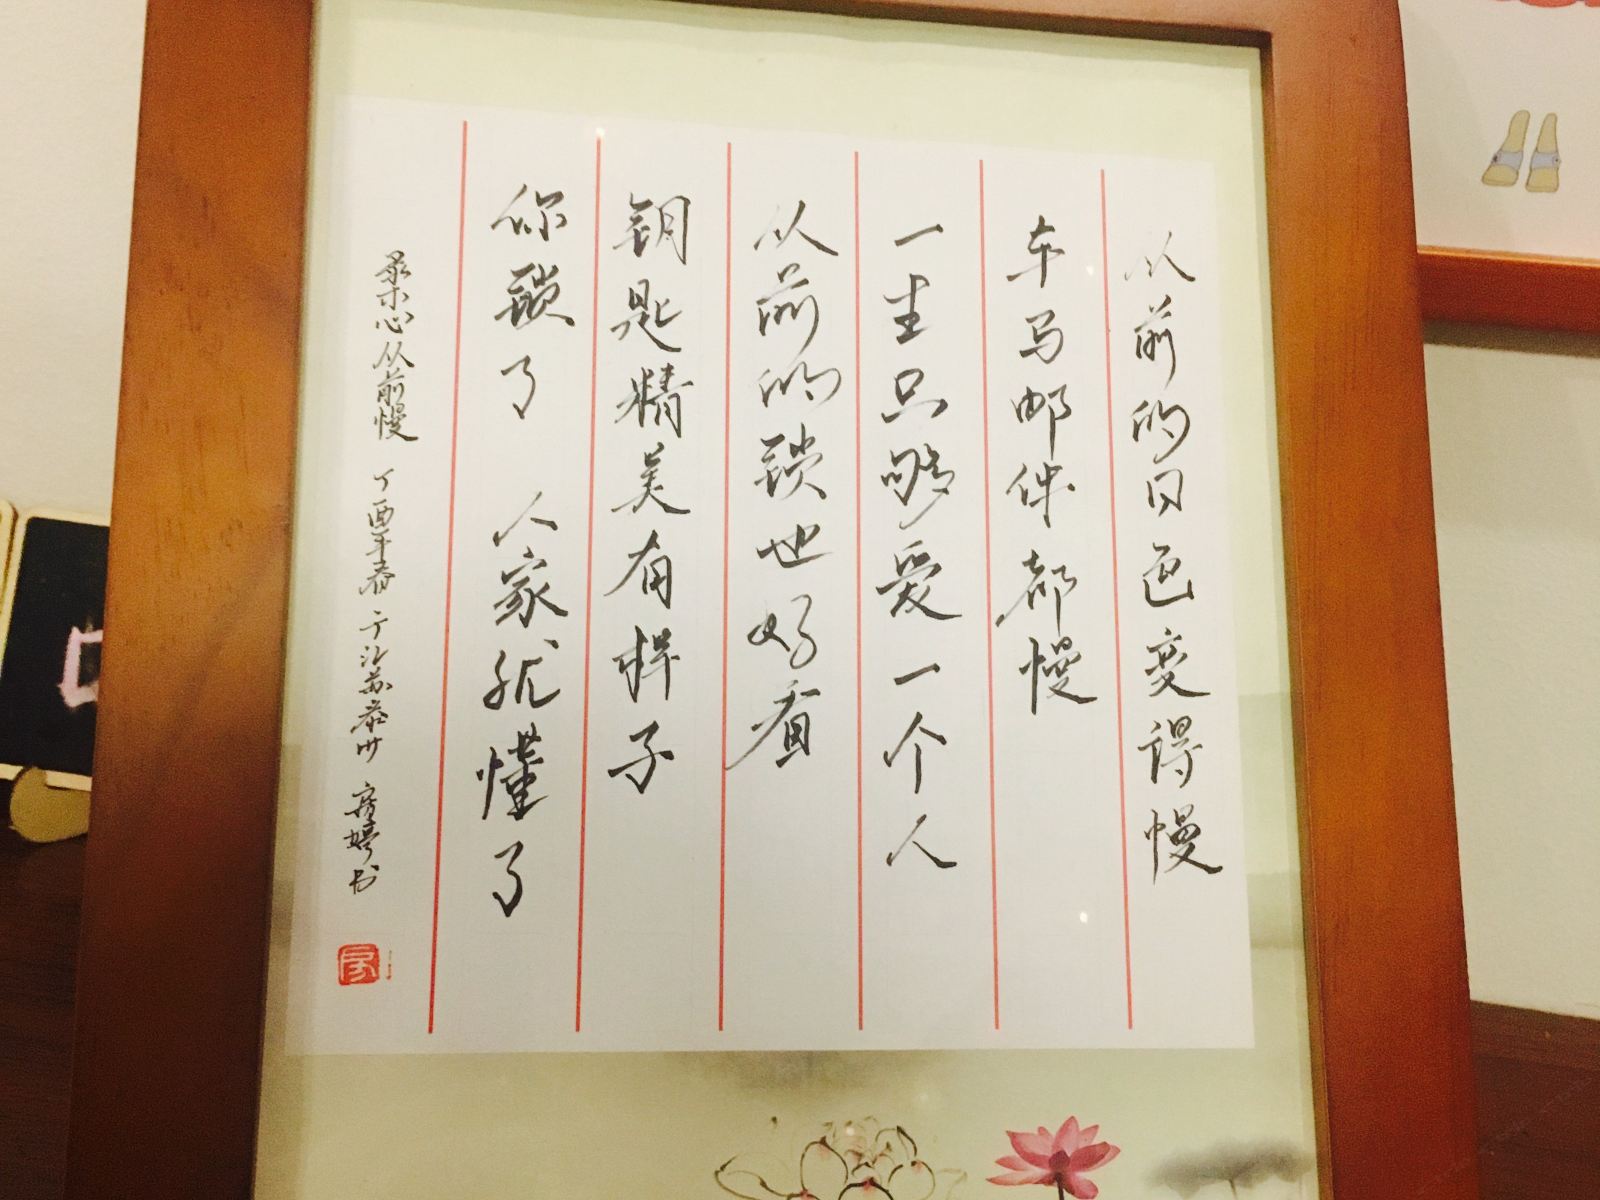 从前的日色变得慢
车马邮件都慢
一生只够爱一个人
从前的锁也好看
钥匙精美有样子
你锁了 人家就懂了
录木心从前慢 丁酉年春于江苏泰州 房婷书
房